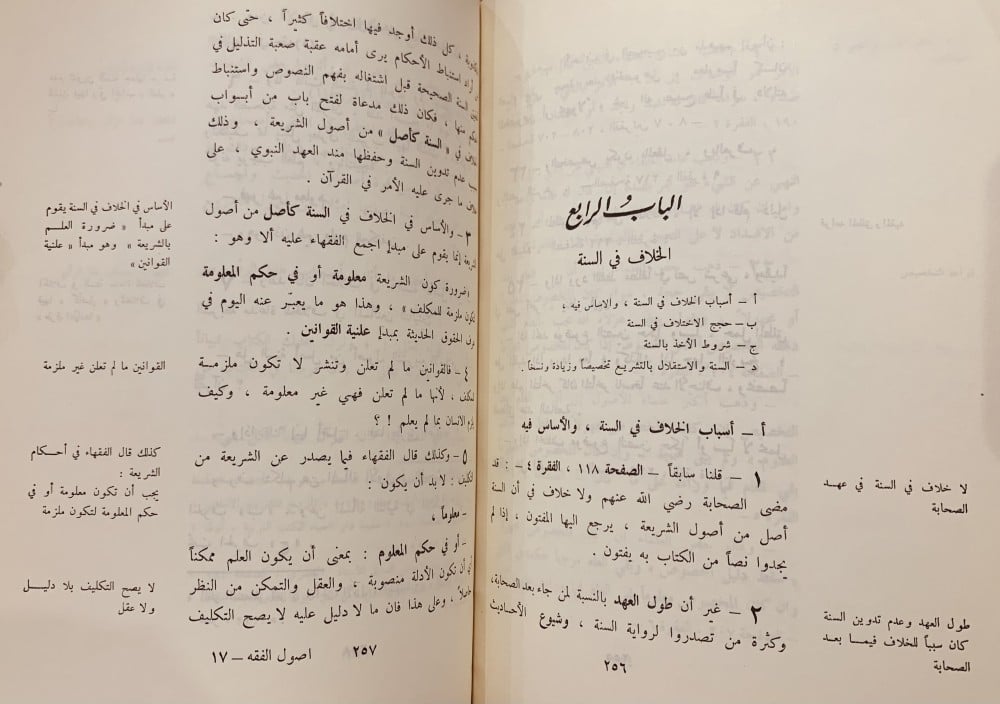 الباب الرابع
الخلاف في السنة
أ – أسباب الخلاف في السنة ، والاساس فيه ،
ب – حجج الاختلاف في السنة
ج – شروط الأخذ بالسنة
د – السنة والاستقلال بالتشريع تخصيصاً وزيادة ونسخاً .
أ – أسباب الخلاف في السنة ، والأساس فيه
١ – قلنا سابقاً – الصفحة ١١٨ ، الفقرة ٤ – : قد
مضى الصحابة رضي الله عنهم ولا خلاف في أن السنة
أصل من أصول الشريعة ، يرجع اليها المفتون ، إذا لم
يجدوا نصاً من الكتاب به يفتون .
٢ – غير أن طول العهد بالنسبة لمن جاء بعد الصحابة،
وكثرة من تصدروا لرواية السنة ، وشيوع الأحاديث
لا خلاف في السنة في عهد
الصحابة
طول العهد وعدم تدوين السنة
كان سبباً للخلاف فيما بعد
الصحابة
٢٥٦
، كل ذلك أوجد فيها اختلافاً كثيراً ، حتى كان
استنباط الأحكام يرى أمامه عقبة صعبة التذليل في
السنة الصحيحة قبل اشتغاله بفهم النصوص واستنباط
منها ، فكان ذلك مدعاة لفتح باب من أبسواب
في « السنة كأصل » من أصول الشريعة ، وذلك
عدم تدوين السنة وحفظها منذ العهد النبوي ، على
ما جرى عليه الأمر في القرآن .
٣ – والأساس في الخلاف في السنة كأصل من أصول
الشريعة إنما يقوم على مبدإ اجمع الفقهاء عليه ألا وهو :
ضرورة كون الشريعة معلومة أو في حكم المعلومة
لتكون ملزمة للمكلف » ، وهذا هو ما يعبر عنه اليوم في
الحقوق الحديثة بمبدإ علنية القوانين .
٤ – فالقوانين ما لم تعلن وتنشر لا تكون ملزمة
للمكلف ، لأنها ما لم تعلن فهي غير معلومة ، وكيف
الانسان بما لم يعلم ! ؟
٥ – وكذلك قال الفقهاء فيما يصدر عن الشريعة من
تكليف : لا بد أن يكون :
– معلوماً ،
– أو في حكم المعلوم : بمعنى أن يكون العلم ممكناً
أن تكون الأدلة منصوبة ، والعقل والتمكن من النظر
، وعلى هذا فان ما لا دليل عليه لا يصح التكليف
الأساس في الخلاف في السنة يقوم
على مبدأ « ضرورة العلم
بالشريعة » وهو مبدأ « علنية
القوانين »
القوانين ما لم تعلن غير ملزمة
كذلك قال الفقهاء في أحكام
الشريعة :
يجب أن تكون معلومة أو في
حكم المعلومة لتكون ملزمة
لا يصح التكليف بلا دليل
ولا عقل
٢٥٧
اصول الفقه – ١٧